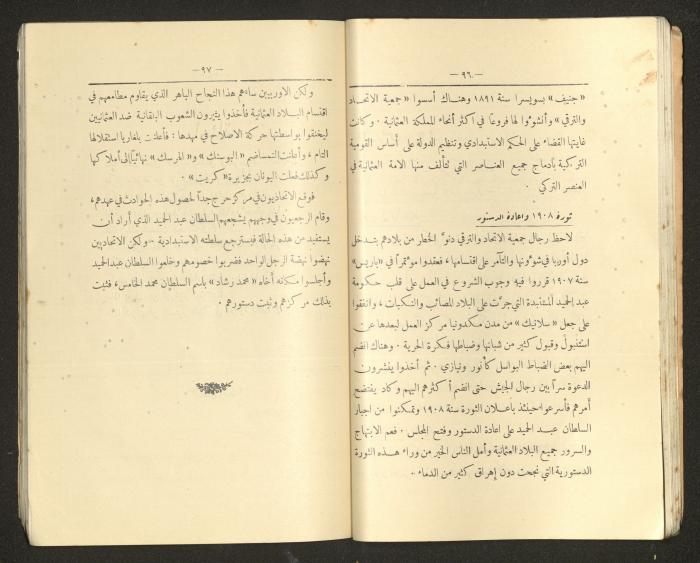 — ٩٦ —
« جنيف » بسويسرا سنة ١٨٩١ وهناك أسسوا « جمعية الاتحاد
والترقي » وأنشؤوا لها فروعًا في اكثر أنحاء المملكة العثمانية . وكانت
غايتها القضاء على الحكم الاستبدادي وتنظيم الدولة على أساس القومية
التركية بادماج جميع العناصر التي تتألف منها الامة العثمانية في
العنصر التركي .
ثورة ١٩٠٨ واعادة الدستور
لاحظ رجال جمعية الاتحاد والترقي دنوّ الخطر من بلادهم بتدخل
دول أوربا في شؤونها والتآمر على اقتسامها، فعقدوا مؤتمراً في « باريس »
سنة ١٩٠٧ قرروا فيه وجوب الشروع في العمل على قلب حكومة
عبد الحميد المستبدة التي جرّت على البلاد المصائب والنكبات ، واتفقوا
على جعل « سلانيك » من مدن مكدونيا مركز العمل لبعدها عن
استنبول وقبول كثير من شبانها وضباطها فكرة الحرية . وهناك انضم
اليهم بعض الضباط البواسل كأنور ونيازي . ثم أخذوا ينشرون
الدعوة سراً بين رجال الجيش حتى انضم أكثرهم اليهم وكاد يفتضح
أمرهم فأسرعوا حينئذ بأعلان الثورة سنة ١٩٠٨ وتمكنوا من اجبار
السلطان عبد الحميد على اعادة الدستور وفتح المجلس . فعم الابتهاج
والسرور جميع البلاد العثمانية وأمل الناس الخير من وراء هذه الثورة
الدستورية التي نجحت دون إهراق كثير من الدماء .
— ٩٧ —
ولكن الاوربيين ساءهم هذا النجاح الباهر الذي يقاوم مطامعهم في
اقتسام البلاد العثمانية فأخذوا يثيرون الشعوب البلقانية ضد العثمانيين
ليخنقوا بواسطتها حركة الاصلاح في مهدها : فأعلنت بلغاريا استقلالها
التام ، وأعلنت النمسا ضم « البوسنك » و « الهرسك » نهائيًا إلى أملاكها
وكذلك فعلت اليونان بجزيرة « كريت » .
فوقع الاتحاديون في مركز حرج جداً لحصول هذه الحوادث في عهدهم ،
وقام الرجعيون في وجههم يشجعهم السلطان عبد الحميد الذي أراد أن
يستفيد من هذه الحالة فيسترجع سلطته الاستبدادية . ولكن الاتحاديين
نهضوا نهضة الرجل الواحد فضربوا خصومهم وخلعوا السلطان عبد الحميد
وأجلسوا مكانه أخاه « محمد رشاد » باسم السلطان محمد الخامس ، فثبت
بذلك مركزهم وثبت دستورهم .